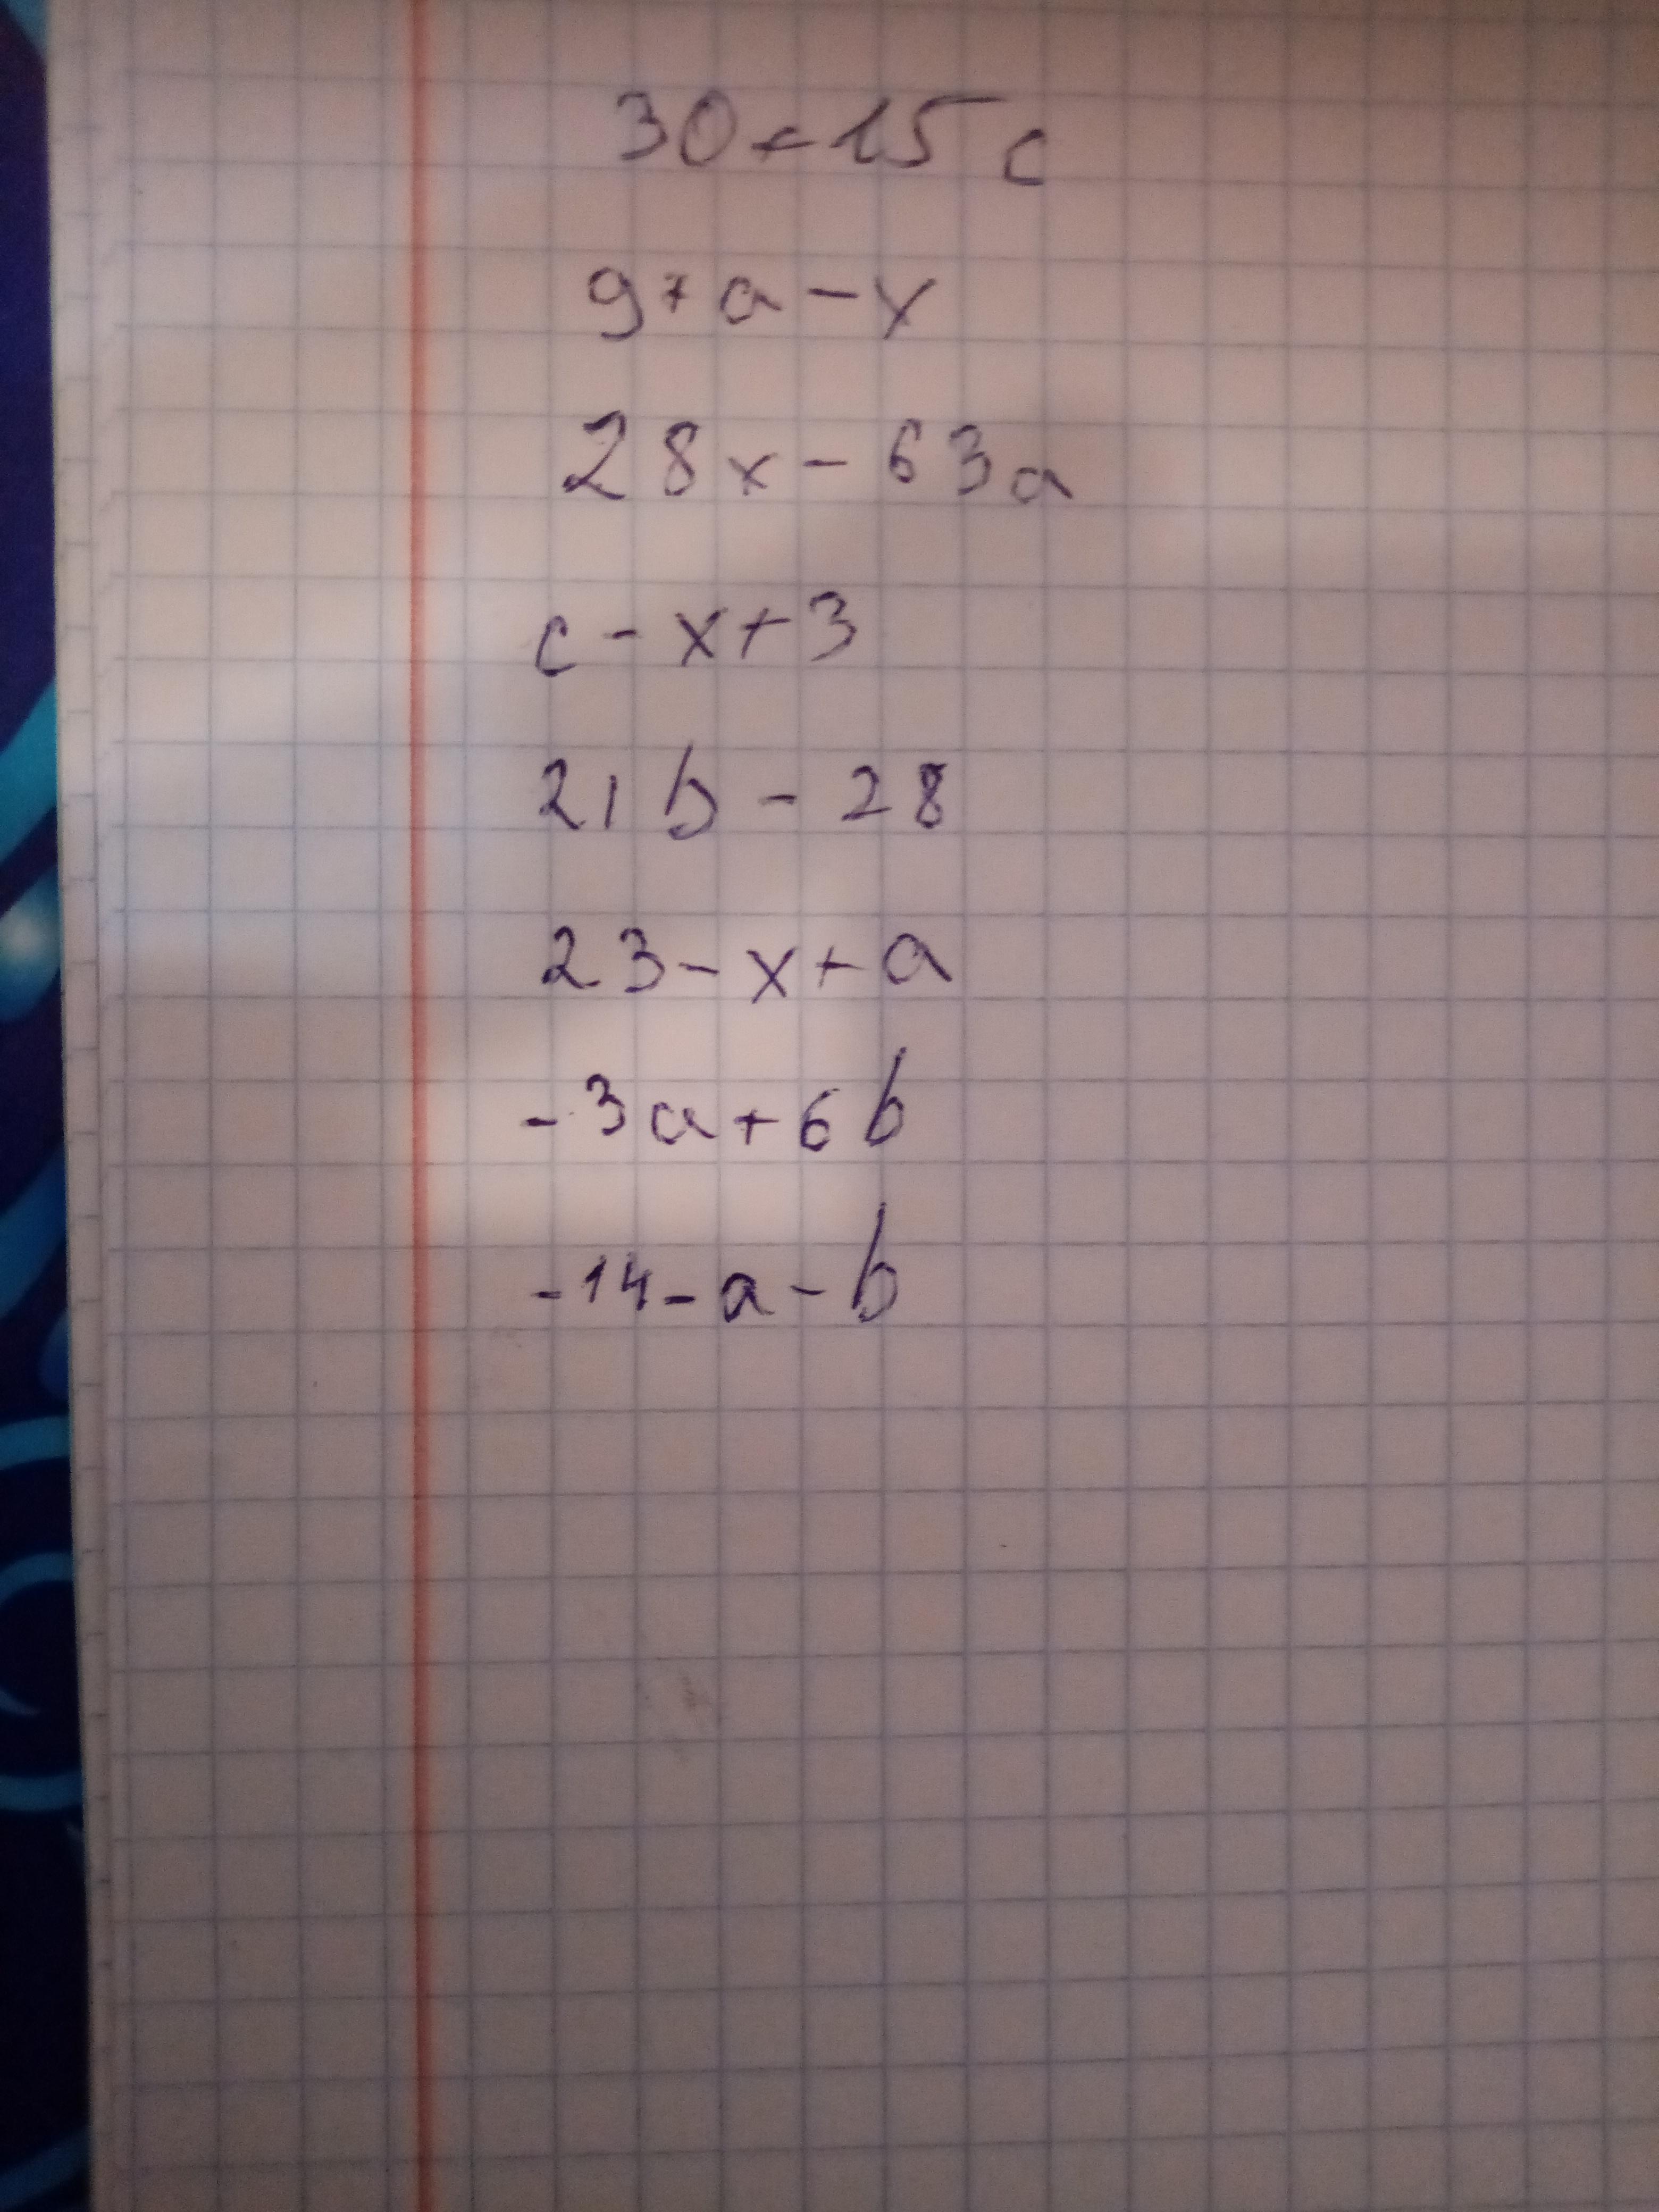 30+15c
9+a-x
28x-63a
c-x+3
21b-28
23-x+a
-3a+6b
-14-a-b